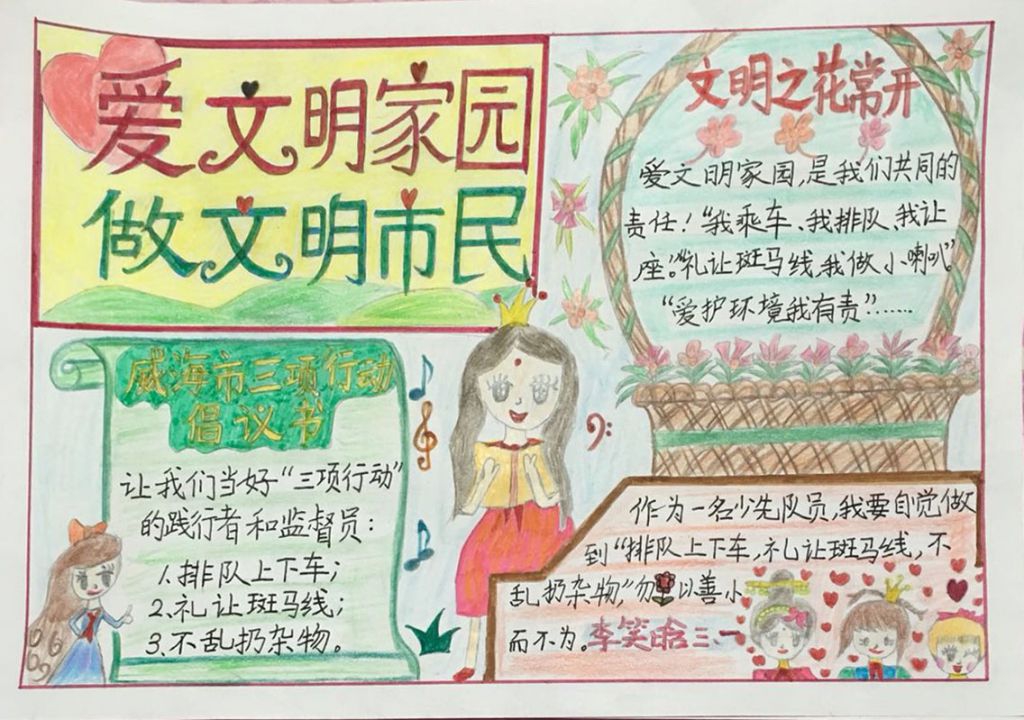 爱文明家园
做文明市民
文明之花常开
爱文明家园,是我们共同的
责任!“我乘车、我排队、我让
座。”“礼让斑马线,我做小喇叭”
“爱护环境我有责”……
威海市三项行动
倡议书
让我们当好“三项行动”
的践行者和监督员:
1.排队上下车;
2.礼让斑马线;
3.不乱扔杂物。
作为一名少先队员,我要自觉做
到“排队上下车,礼让斑马线,不
乱扔杂物,”勿以善小
而不为。李笑晗三、一